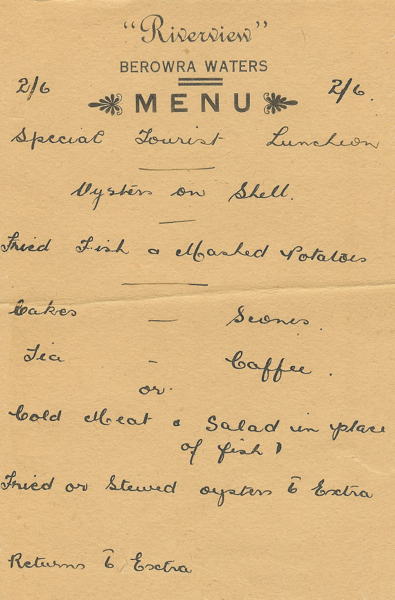 "Riverview"
BEROWRA WATERS
2/6 2/6.
MENU
Special Tourist Luncheon
Oysters on Shell.
Fried Fish & Mashed Potatoes
Cakes — Scones.
Tea - Coffee.
or
Cold Meat & Salad in place
of fish)
Fried or Stewed oysters Extra
Returns Extra